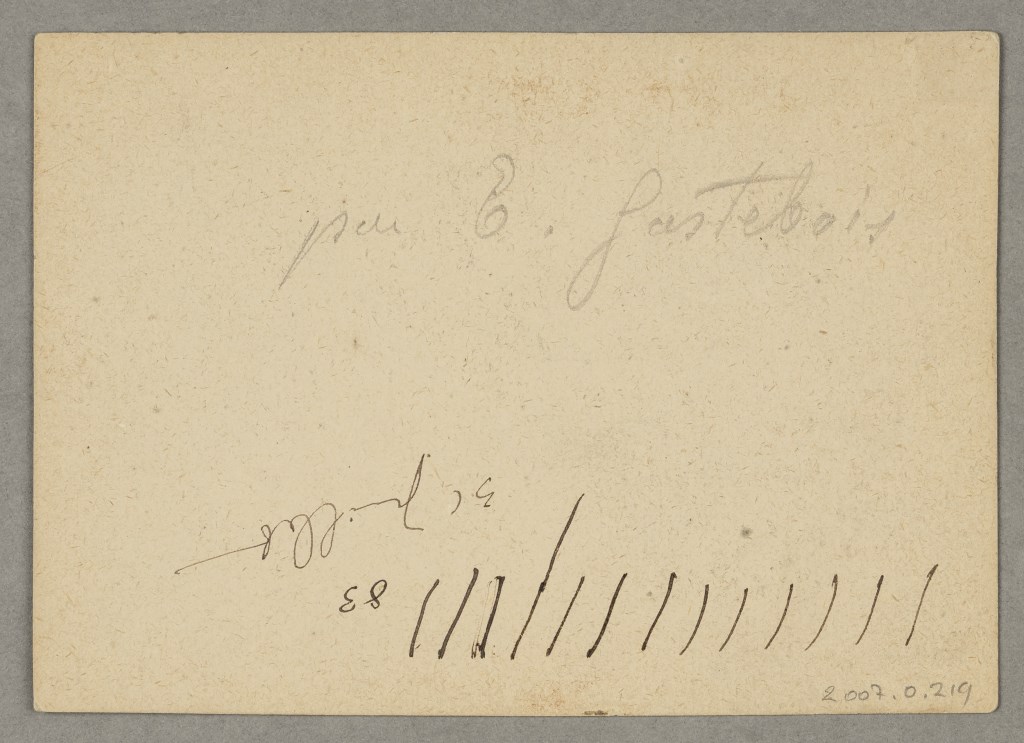 par E. Gastebois
31 juillet
83
2007.0.219